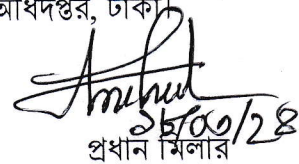 অধিদপ্তর, ঢাকা।
১৮/০৩/২৪
প্রধান মিলার